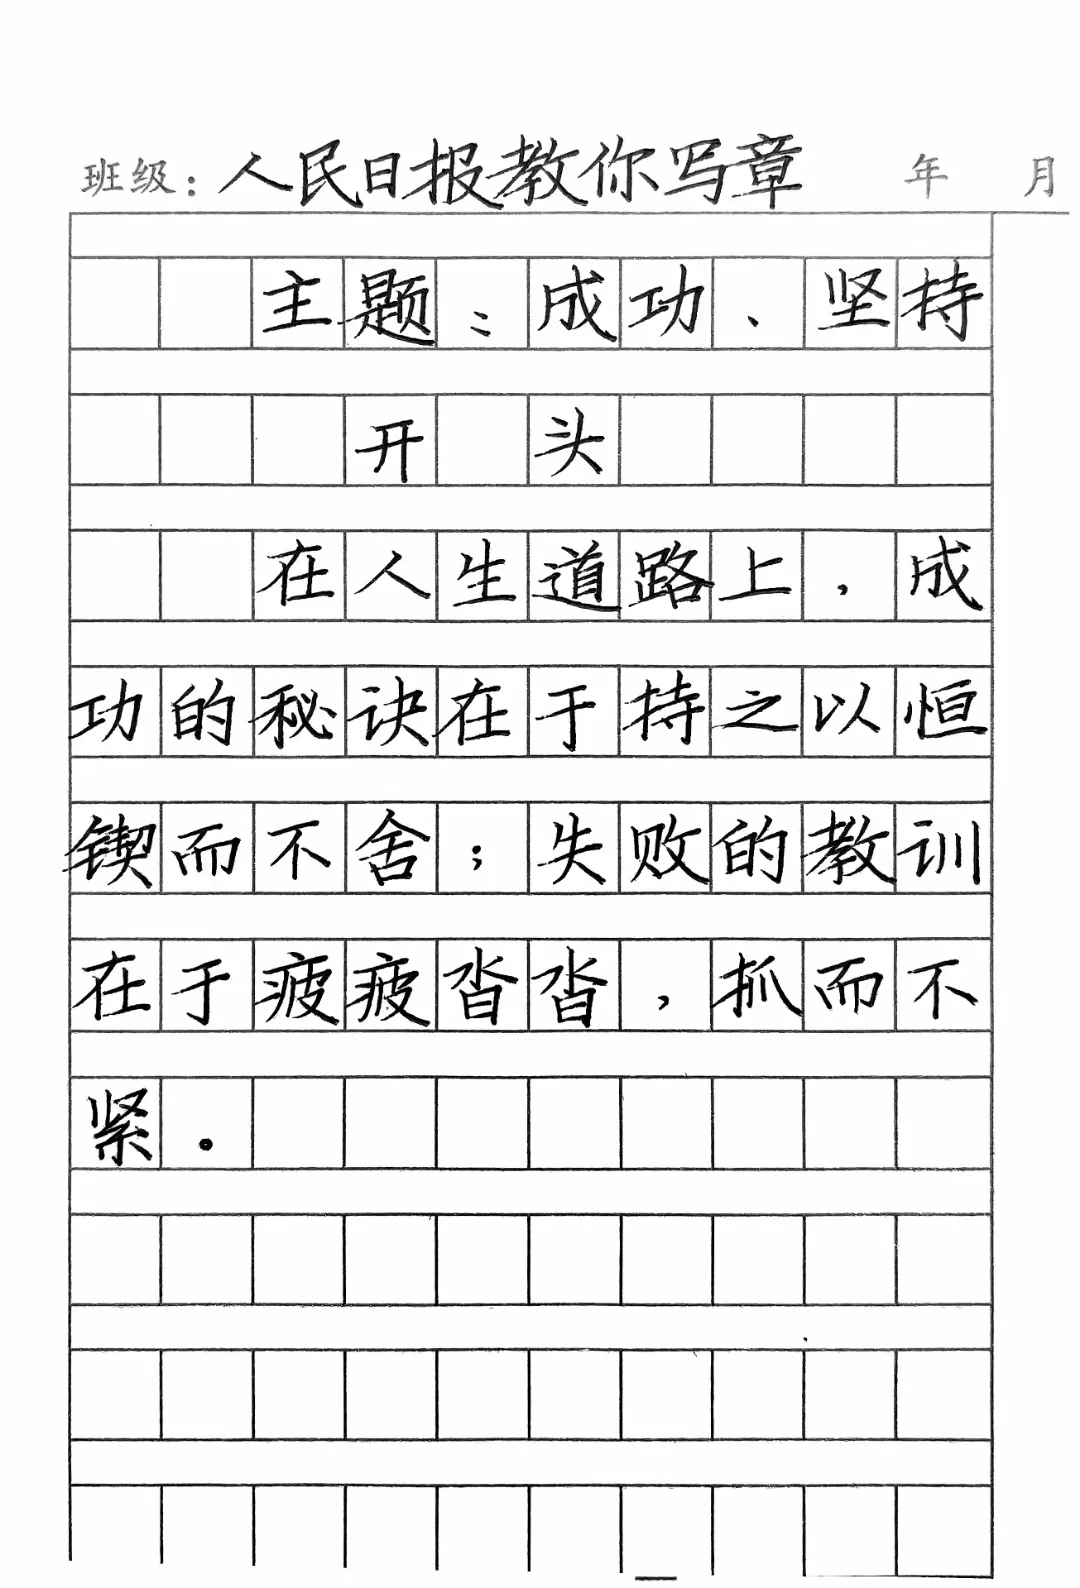 班级：人民日报教你写章 年 月
主题：成功、坚持
开头
在人生道路上，成
功的秘诀在于持之以恒
锲而不舍；失败的教训
在于疲疲沓沓，抓而不
紧。